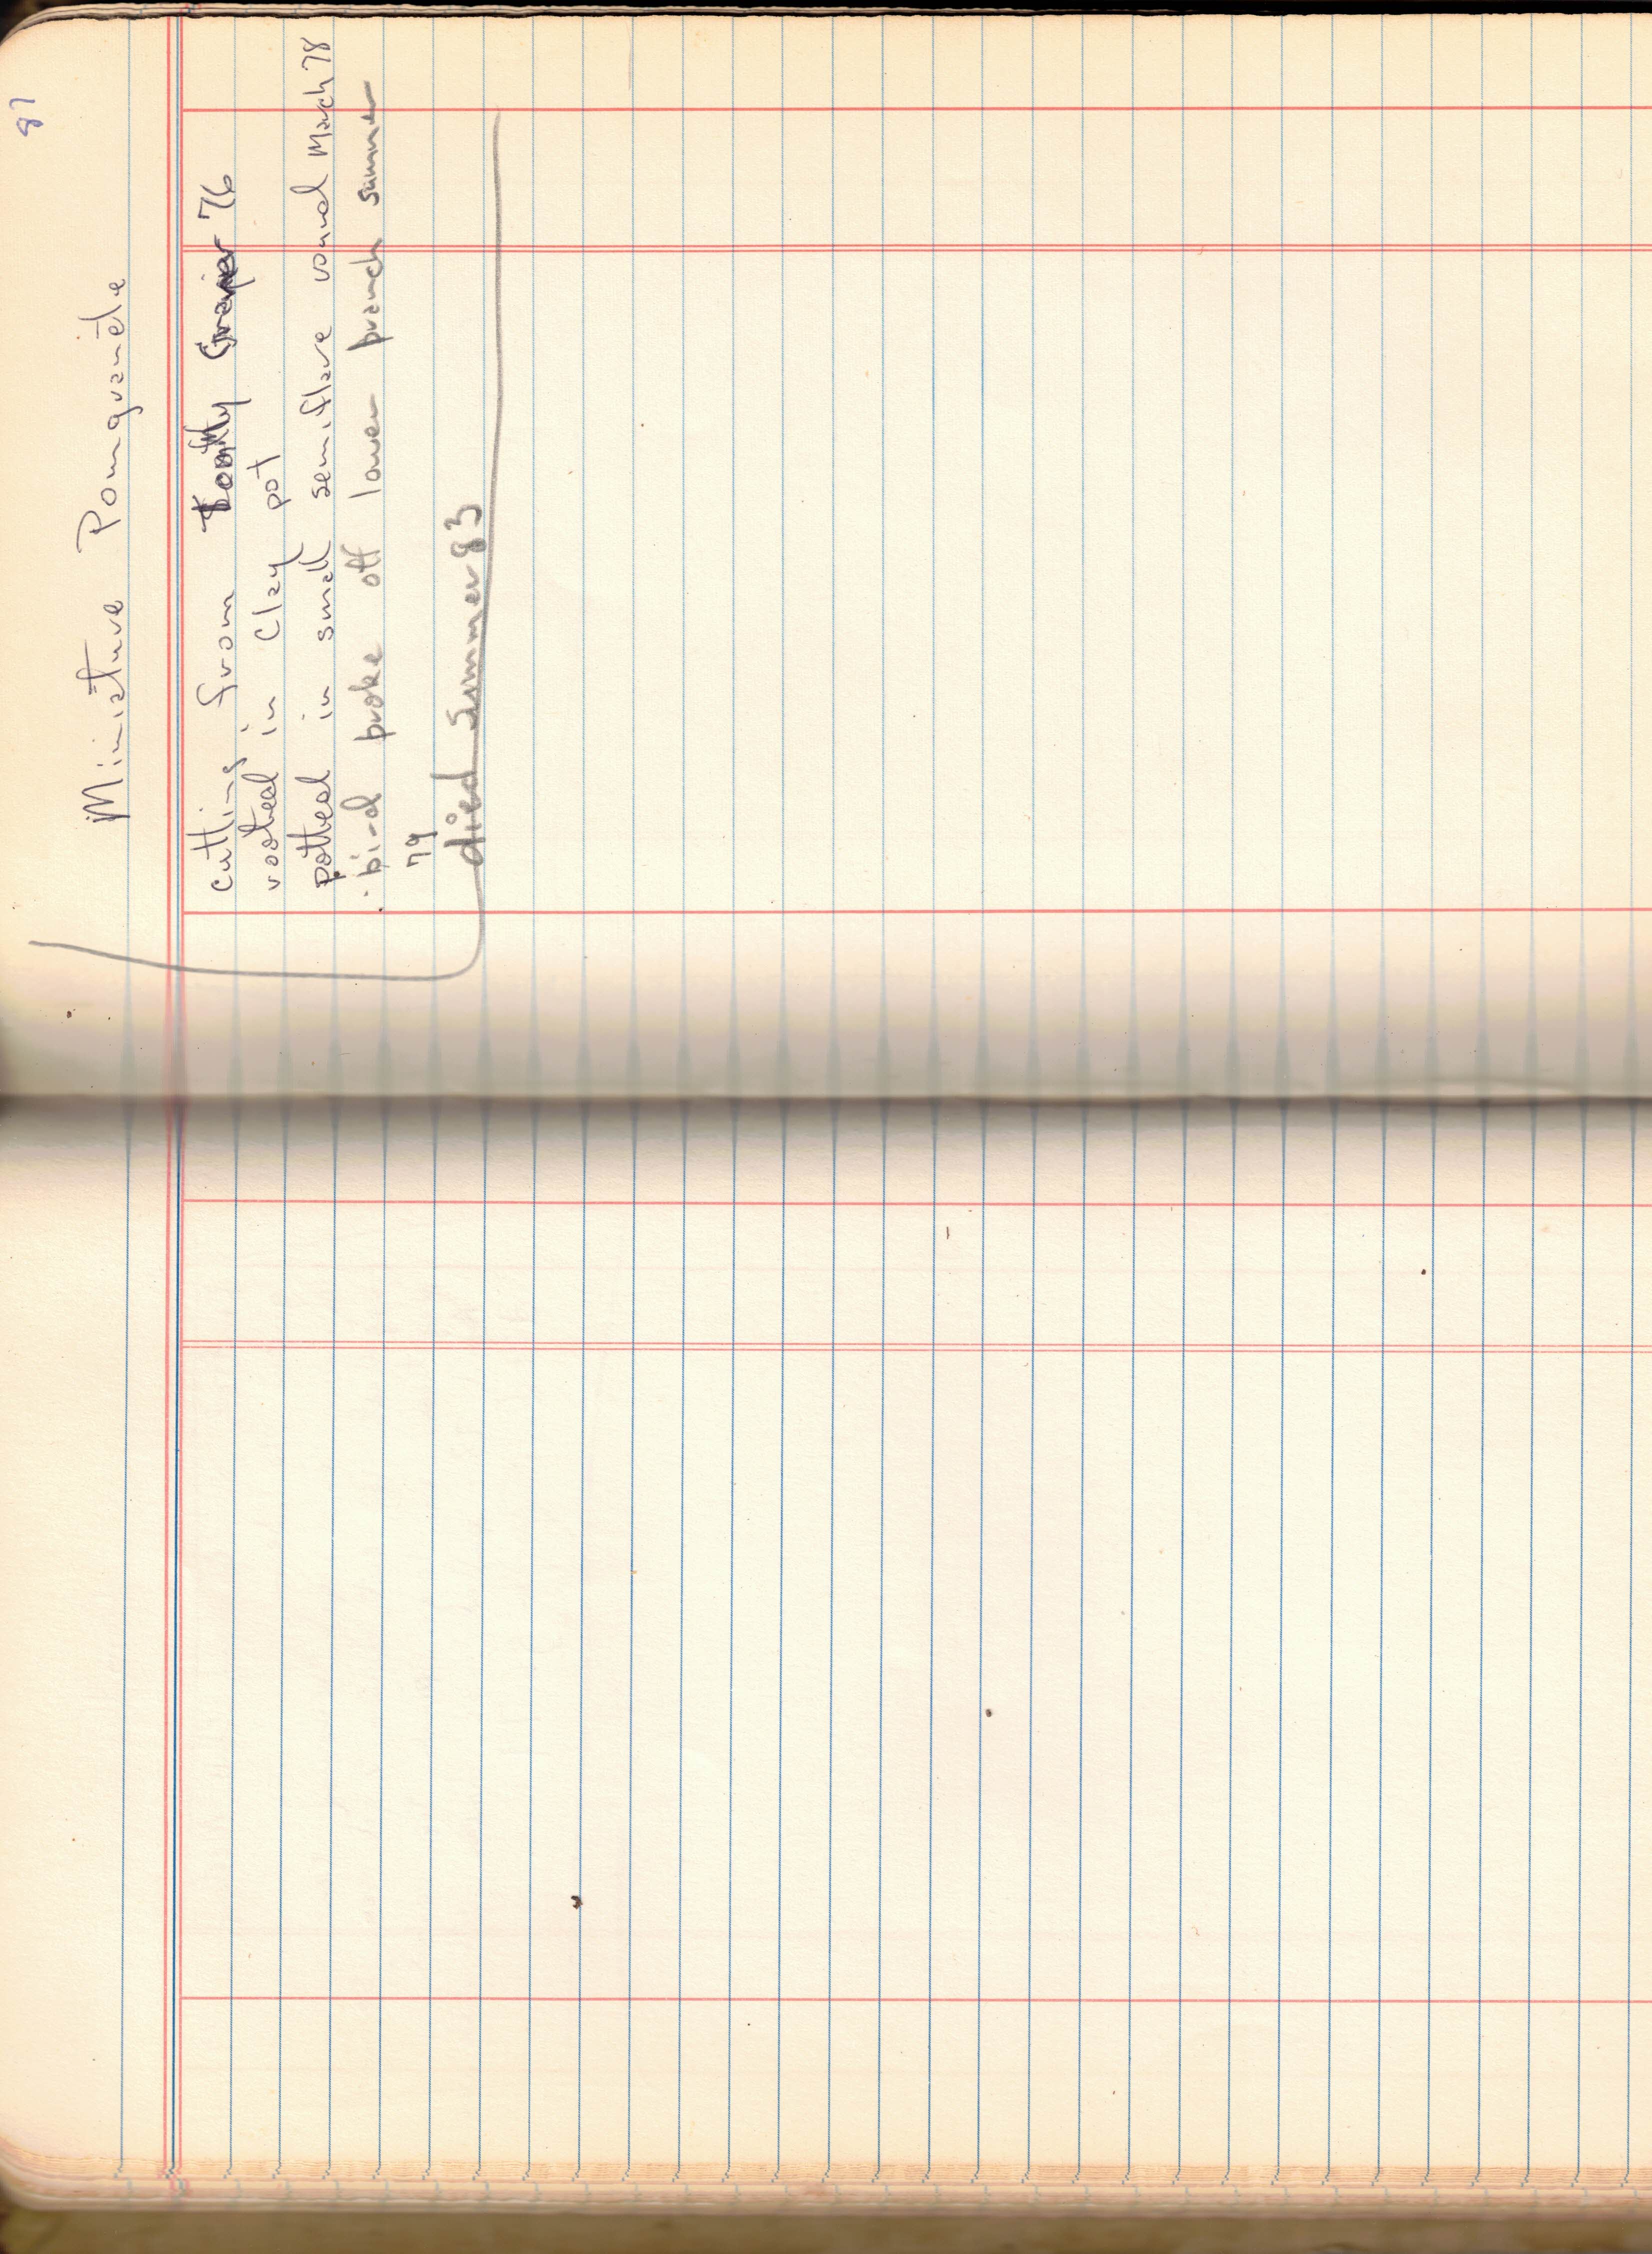 87
Miniature Pomgranate
cutting from 76
rooted in Clay pot
potted in small semiflare round March 78
bird broke off lower branch summer
79
died Summer 83